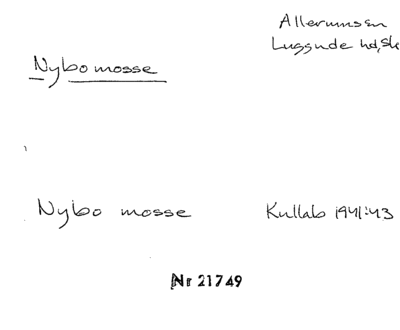 Allerums sn
Luggude hd, Sk
Nybo mosse
Nybo mosse Kullab 1941:43
Nr 21749